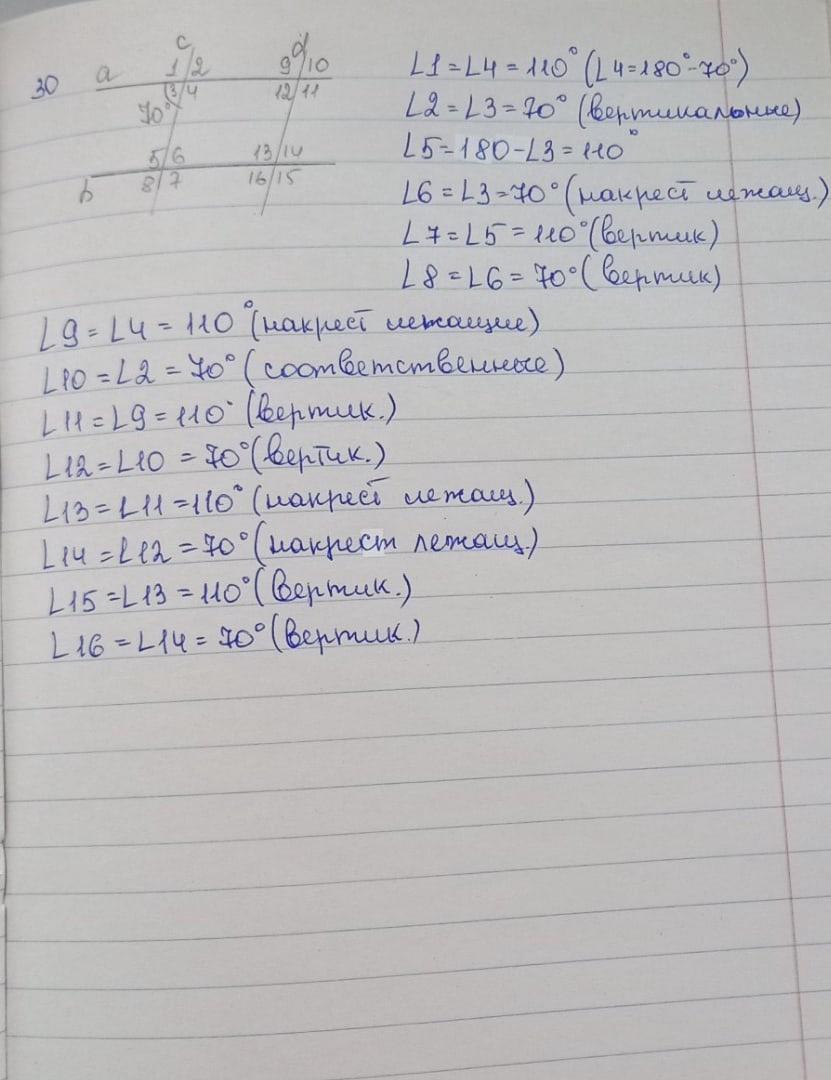 30
a
c
d
1/2
9/10
3/4
12/11
70°
5/6
13/14
b
8/7
16/15
∠1=∠4=110° (∠4=180°-70°)
∠2=∠3=70° (вертикальные)
∠5=180-∠3=110°
∠6=∠3=70° (накрест лежащ.)
∠7=∠5=110° (вертик)
∠8=∠6=70° (вертик)
∠9=∠4=110° (накрест лежащие)
∠10=∠2=70° (соответственные)
∠11=∠9=110° (вертик.)
∠12=∠10=70° (вертик.)
∠13=∠11=110° (накрест лежащ.)
∠14=∠12=70° (накрест лежащ.)
∠15=∠13=110° (вертик.)
∠16=∠14=70° (вертик.)